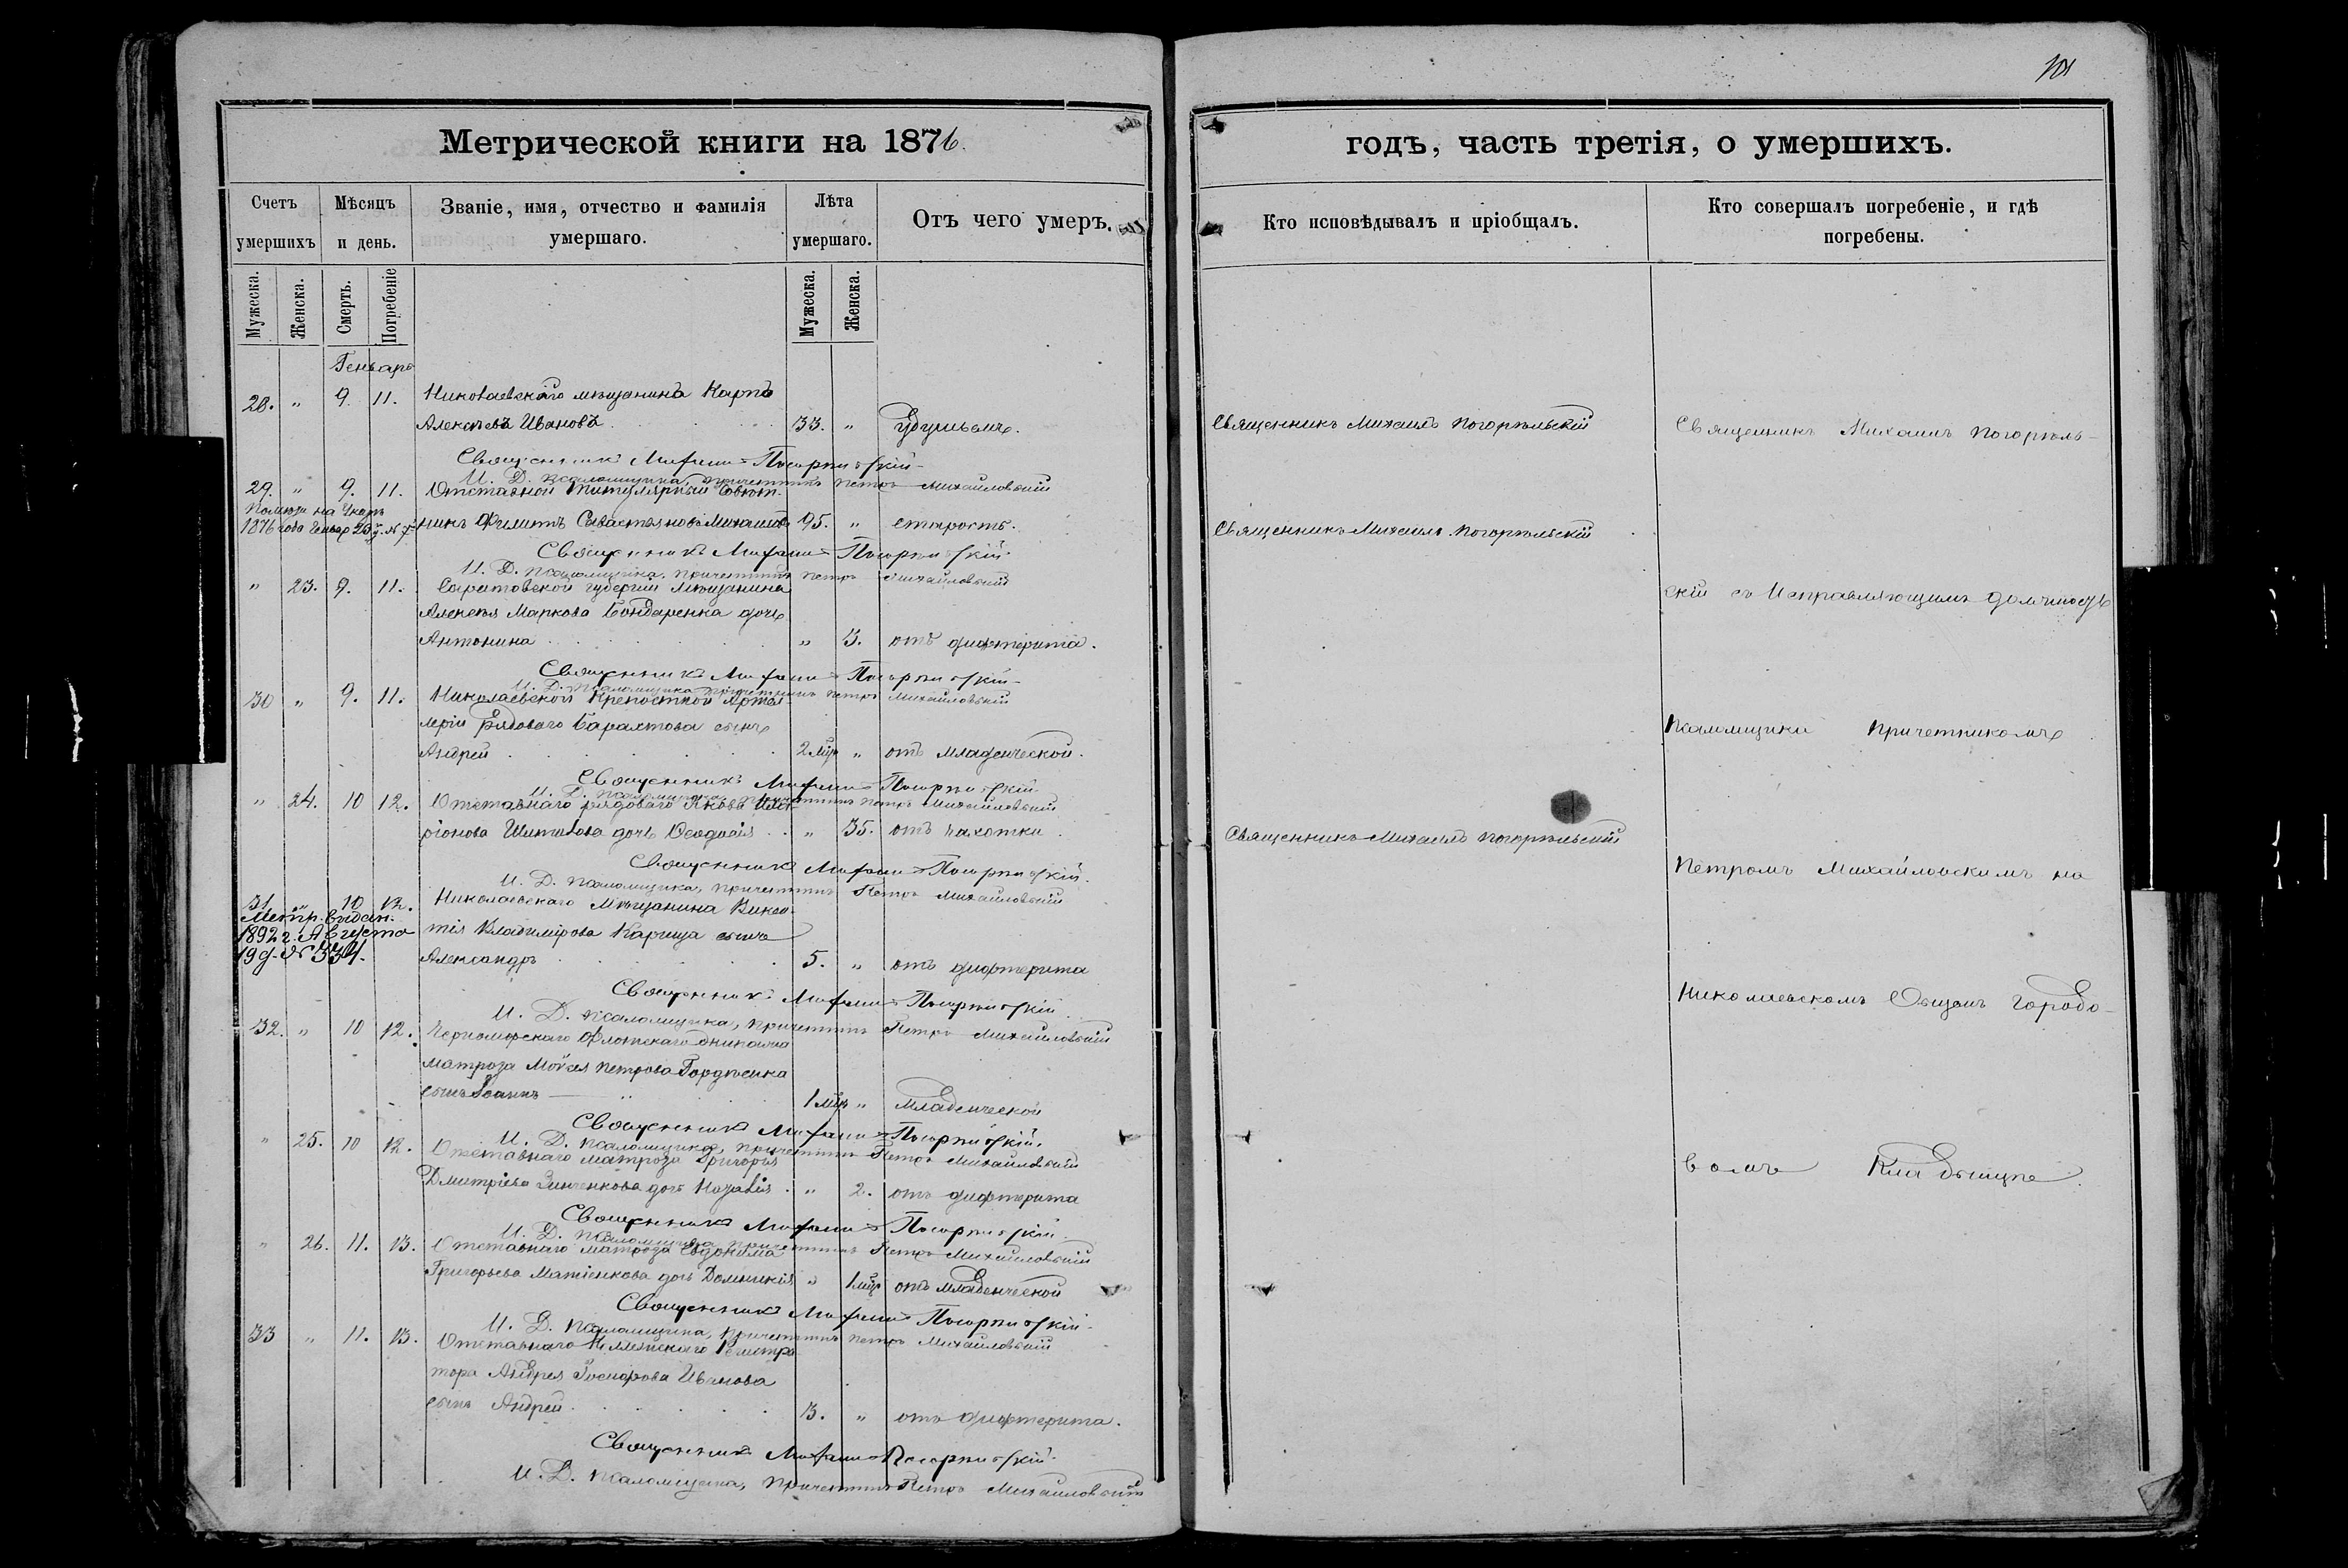 101
Метрической книги на 1876.
годъ, часть третія, о умершихъ.
Счетъ умершихъ
Мѣсяцъ и день.
Званіе, имя, отчество и фамилія умершаго.
Лѣта умершаго.
Отъ чего умеръ.
Кто исповѣдывалъ и пріобщалъ.
Кто совершалъ погребеніе, и гдѣ погребены.
Мужеска. Женска. Смерть. Погребеніе Мужеска. Женска.
Генваря
28. " 9. 11. Николаевскаго мѣщанина Карпъ
Алексѣевъ Ивановъ 33. " Удушьемъ.
Священникъ Михаилъ Погорѣльскій
И. Д. псаломщика, причетникъ Петръ Михайловскій
29. " 9. 11. Отставной Титулярный Совѣт-
1876 года Генвар
никъ Филиппъ Севастьяновъ 95. " старость.
Священникъ Михаилъ Погорѣльскій
И. Д. псаломщика, причетникъ Петръ Михайловскій
" 23. 9. 11. Саратовской губерніи Мѣщанина
Алексѣя Маркова Бондаренка дочь
Антонина " 3. отъ дифтерита.
Священникъ Михаилъ Погорѣльскій
И. Д. псаломщика причетникъ Петръ Михайловскій
30 " 9. 11. Николаевской Крепостной Артил-
леріи Рядоваго сынъ
Андрей 2 мѣс " отъ младенческой.
Священникъ Михаилъ Погорѣльскій
И. Д. псаломщика, причетникъ Петръ Михайловскій
" 24. 10 12. Отставнаго рядоваго Якова Илла-
ріонова дочь Ѳеодосія " 35. отъ чахотки.
Священникъ Михаилъ Погорѣльскій
И. Д. псаломщика, причетникъ Петръ Михайловскій
31. " 10 12. Николаевскаго Мѣщанина Викен-
Метр. выдан.
1892 г. Августа
19 д. № 334.
тія Владимірова сынъ
Александръ 5. " отъ дифтерита
Священникъ Михаилъ Погорѣльскій
И. Д. псаломщика, причетникъ Петръ Михайловскій
32. " 10 12. Черноморскаго Флотскаго экипажа
матроза Моѵсея Петрова Гордѣенка
сынъ Іоаннъ 1 мѣс " младенческой
Священникъ Михаилъ Погорѣльскій.
И. Д. псаломщика, причетникъ Петръ Михайловскій
" 25. 10 12. Отставнаго матроза Григорія
Дмитріева Зинченкова дочь " 2. отъ дифтерита
Священникъ Михаилъ Погорѣльскій
И. Д. псаломщика причетникъ Петръ Михайловскій
" 26. 11. 13. Отставнаго матроза Евдокима
Григорьева Матіенкова дочь Домникія " 1 мѣс отъ младенческой
Священникъ Михаилъ Погорѣльскій
И. Д. псаломщика, причетникъ Петръ Михайловскій
33 " 11. 13. Отставнаго Колежскаго Регистра-
тора Андрея Иванова
сынъ Андрей 3. " отъ дифтерита.
Священникъ Михаилъ Погорѣльскій
И. Д. псаломщика, причетникъ Петръ Михайловскій
Священникъ Михаилъ Погорѣльскій
Священникъ Михаилъ Погорѣльскій
Священникъ Михаилъ Погорѣльскій
Священникъ Михаилъ Погорѣль-
скій съ Исправляющимъ должность
псаломщика Причетникомъ
Петромъ Михайловскимъ на
Николаевскомъ Общемъ Городо-
вомъ Кладбищѣ.